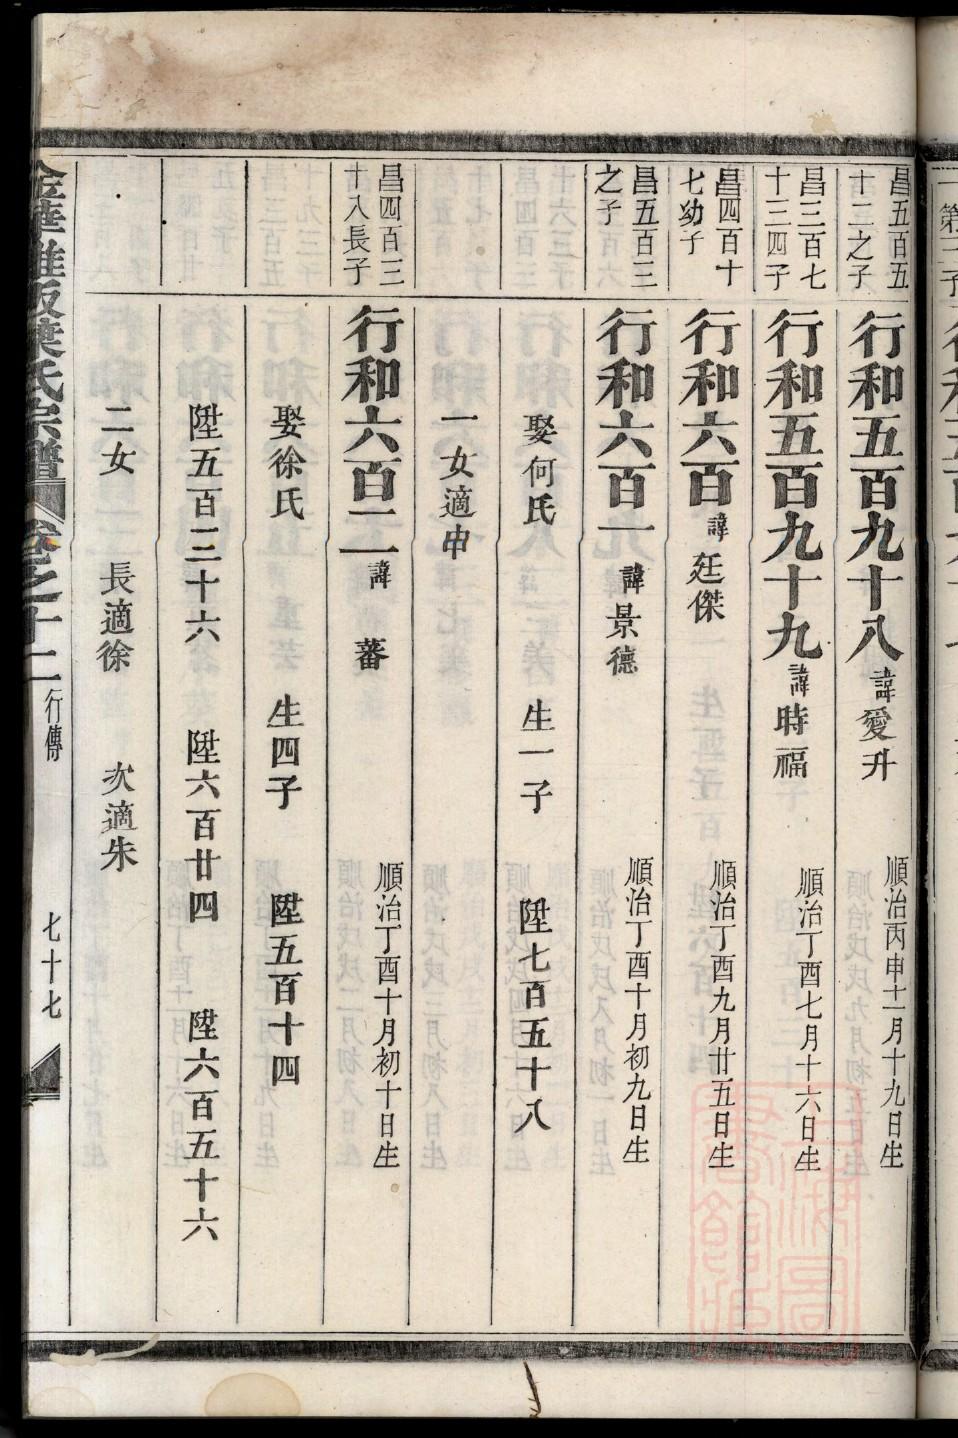 昌五百五
十二之子
行和五百九十八
諱愛升
順治丙申十一月十九日生
昌三百七
十三四子
行和五百九十九
諱時福
順治丁酉七月十六日生
昌四百十
七幼子
行和六百
諱廷傑
順治丁酉九月廿五日生
昌五百三
之子
行和六百一
諱景德
順治丁酉十月初九日生
娶何氏 生一子 陞七百五十八
一女適申
昌四百三
十八長子
行和六百二
諱蕃
順治丁酉十月初十日生
娶徐氏 生四子 陞五百十四
陞五百三十六 陞六百廿四 陞六百五十六
二女 長適徐 次適朱
葉氏宗譜 卷之十二 行傳 七十七